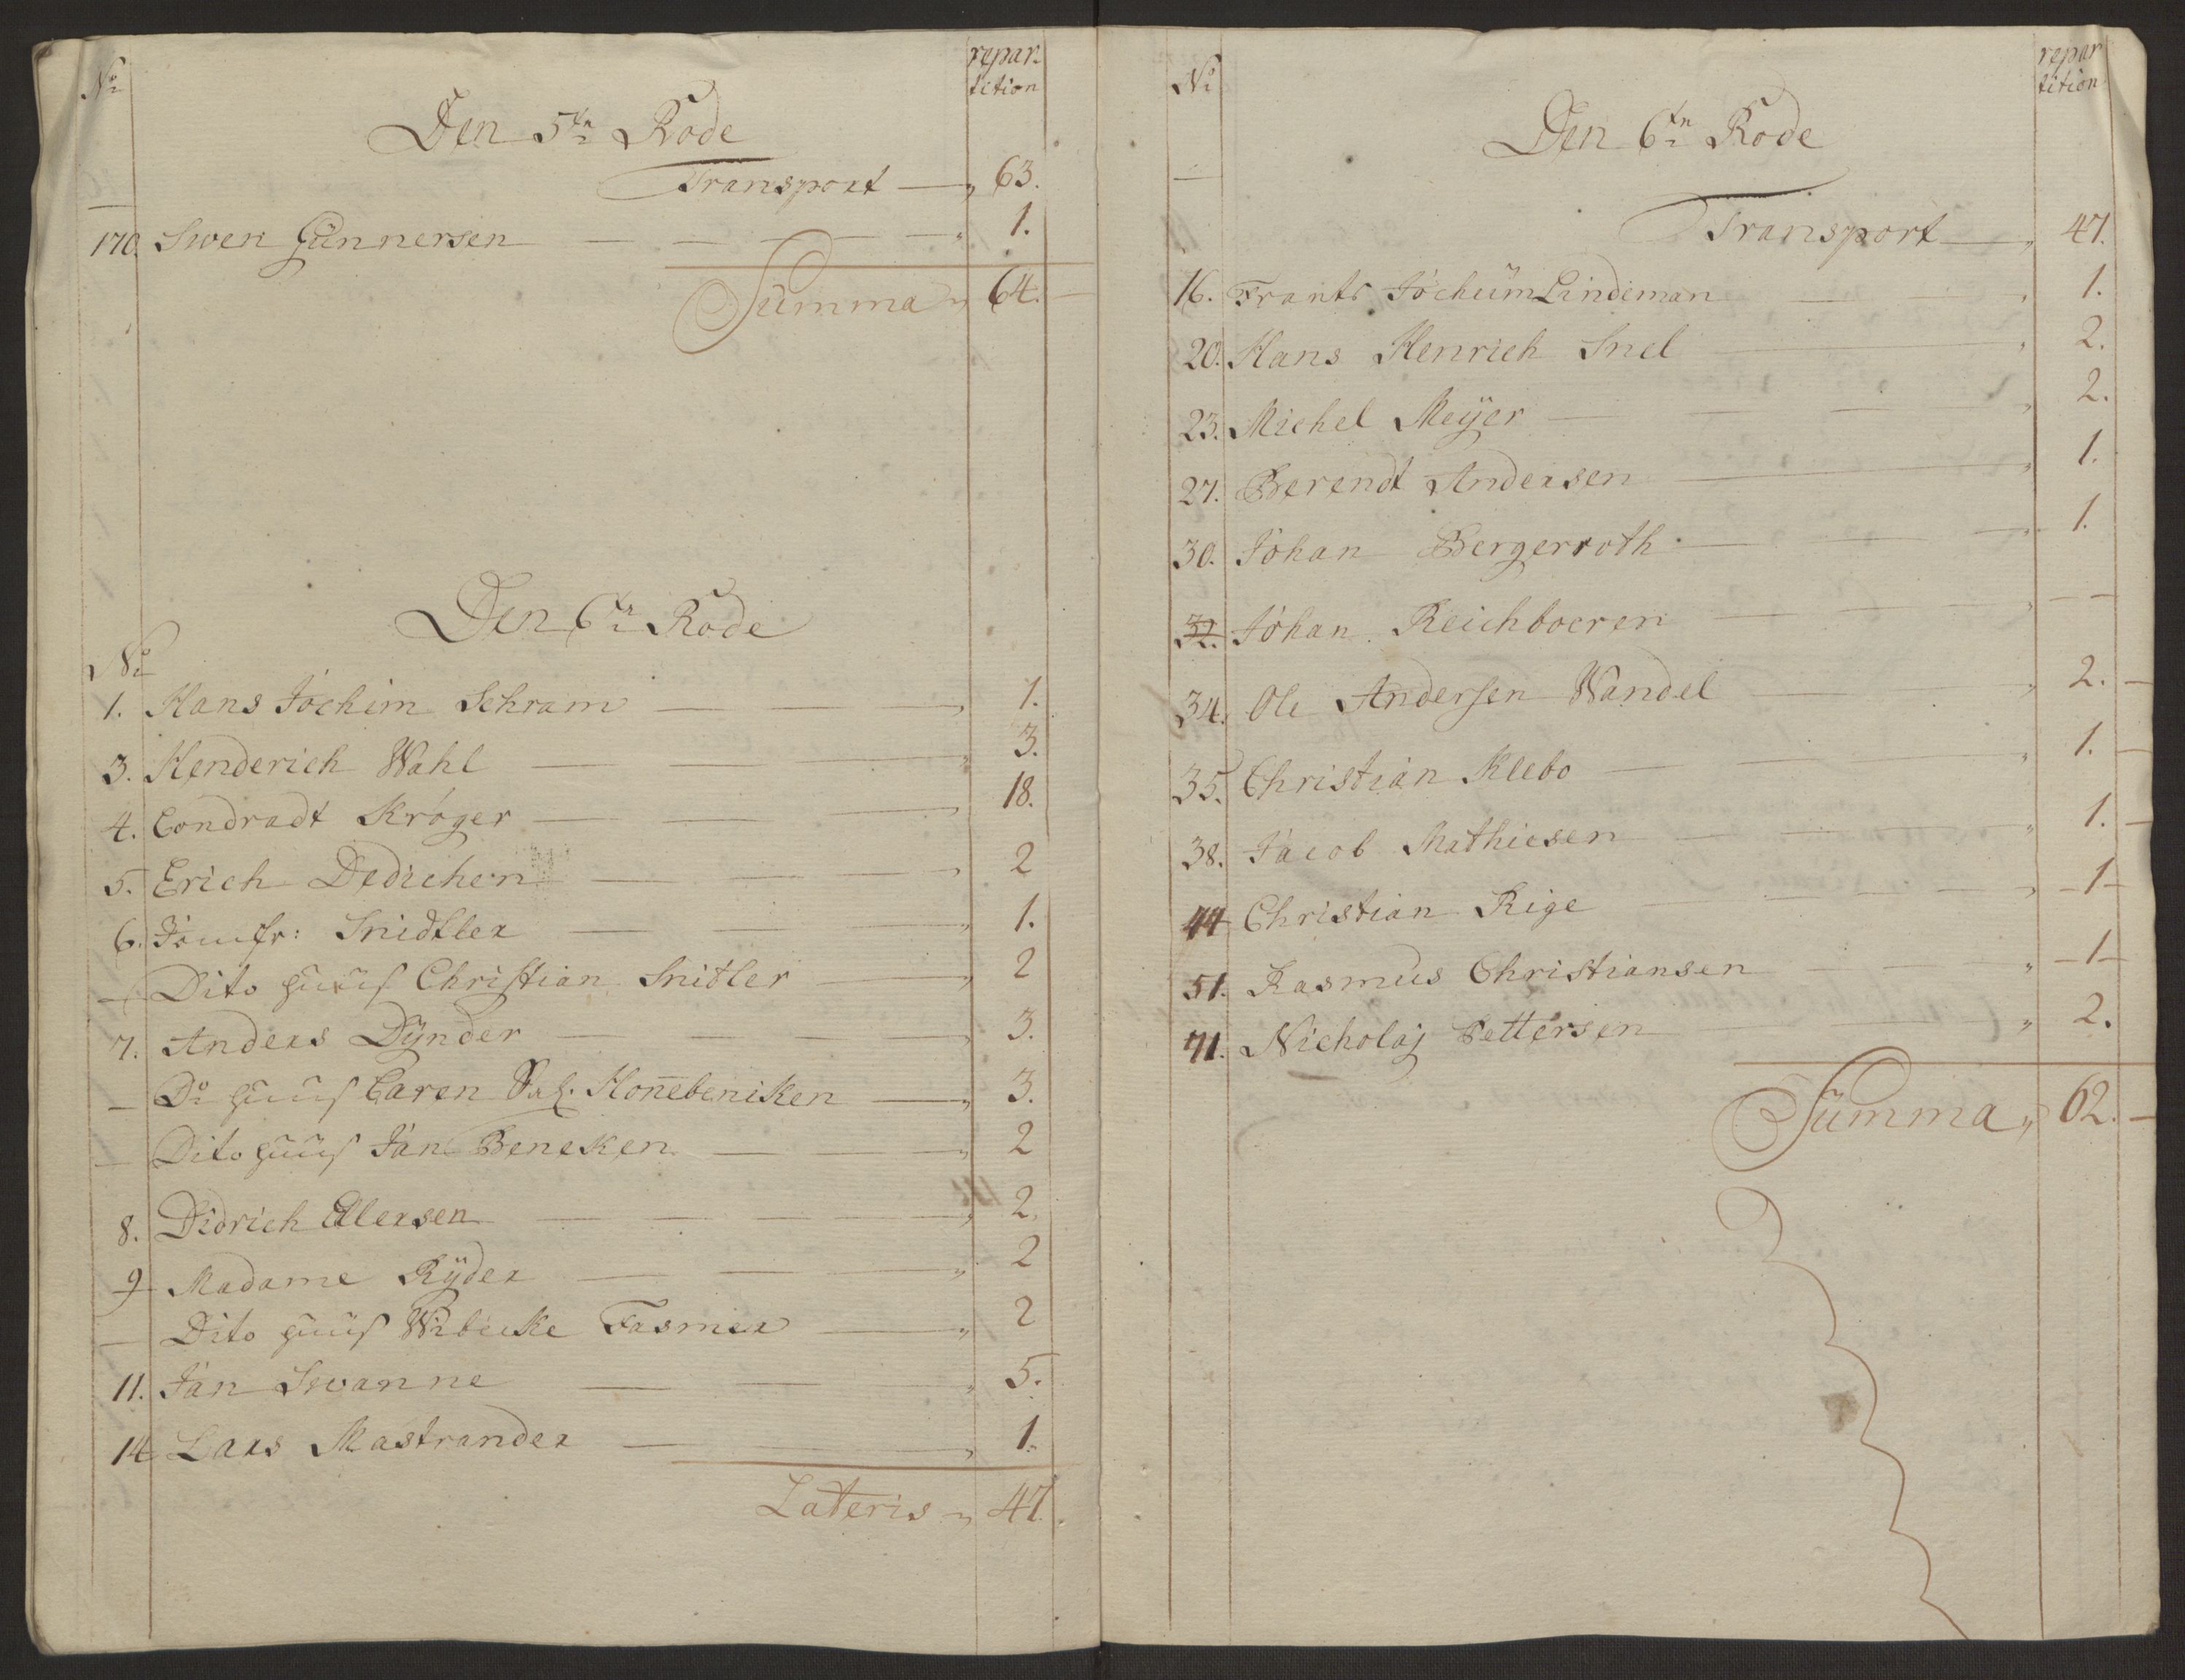 No
repar:
tition
Den 5te Rode
Transport — " 63.
170. Swen Günnersen — " 1.
Summa " 64.
Den 6te Rode
No
1. Hans Jochim Schram — " 1.
3. Henderich Wahl — " 3.
4. Condradt Krøger — " 18.
5. Erich Dedichen — " 2
6. Jomfr: Snidtler — " 1.
— Dito huus Christian Snitler — " 2
7. Anders Dÿnder — " 3.
— Do huus Caren Sal. Honnebeniken — " 3.
— Dito huus Jan Beneken — " 2
8. Didrich Ellersen — " 2.
9 Madame Rÿder — " 2
— Dito huus Wibecke Fasmer — " 2
11. Jan Swanne — " 5.
14 Lars Mastrander — " 1.
Lateris " 47.
No
repar
tition
Den 6te Rode
Transport — " 47.
16. Frants Jochüm Lindeman — " 1.
20. Hans Henrich Snel — " 2.
23. Michel Meÿer — " 2.
27. Berendt Andersen — " 1.
30. Johan Bergerroth — " 1.
32. Johan Reichboeren — " — —
34. Ole Andersen Wandel — " 2. —
35. Christian Klebo — " 1. —
38. Jacob Mathiesen — " 1. —
44 Christian Rige — " — 1 —
51. Rasmus Christiansen — " — 1 —
71. Nicholaj Pettersen — " 2.
Summa " 62. —